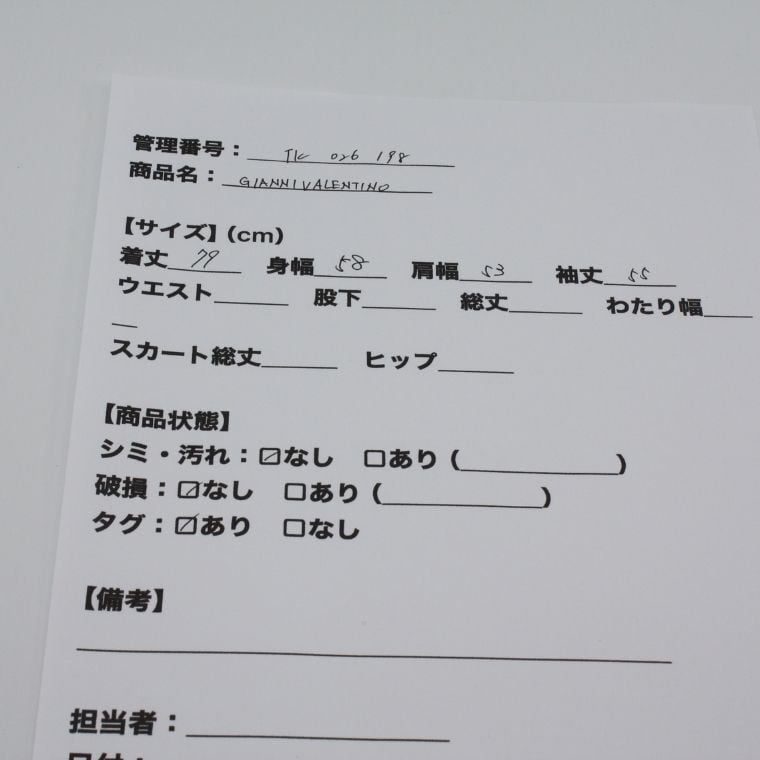 管理番号：TK 026 198
商品名：GIANNI VALENTINO
【サイズ】(cm)
着丈 79 身幅 58 肩幅 53 袖丈 55
ウエスト______ 股下______ 総丈______ わたり幅____
__
スカート総丈______ ヒップ______
【商品状態】
シミ・汚れ：☑なし □あり (____________)
破損：☑なし □あり (____________)
タグ：☑あり □なし
【備考】
担当者：____________